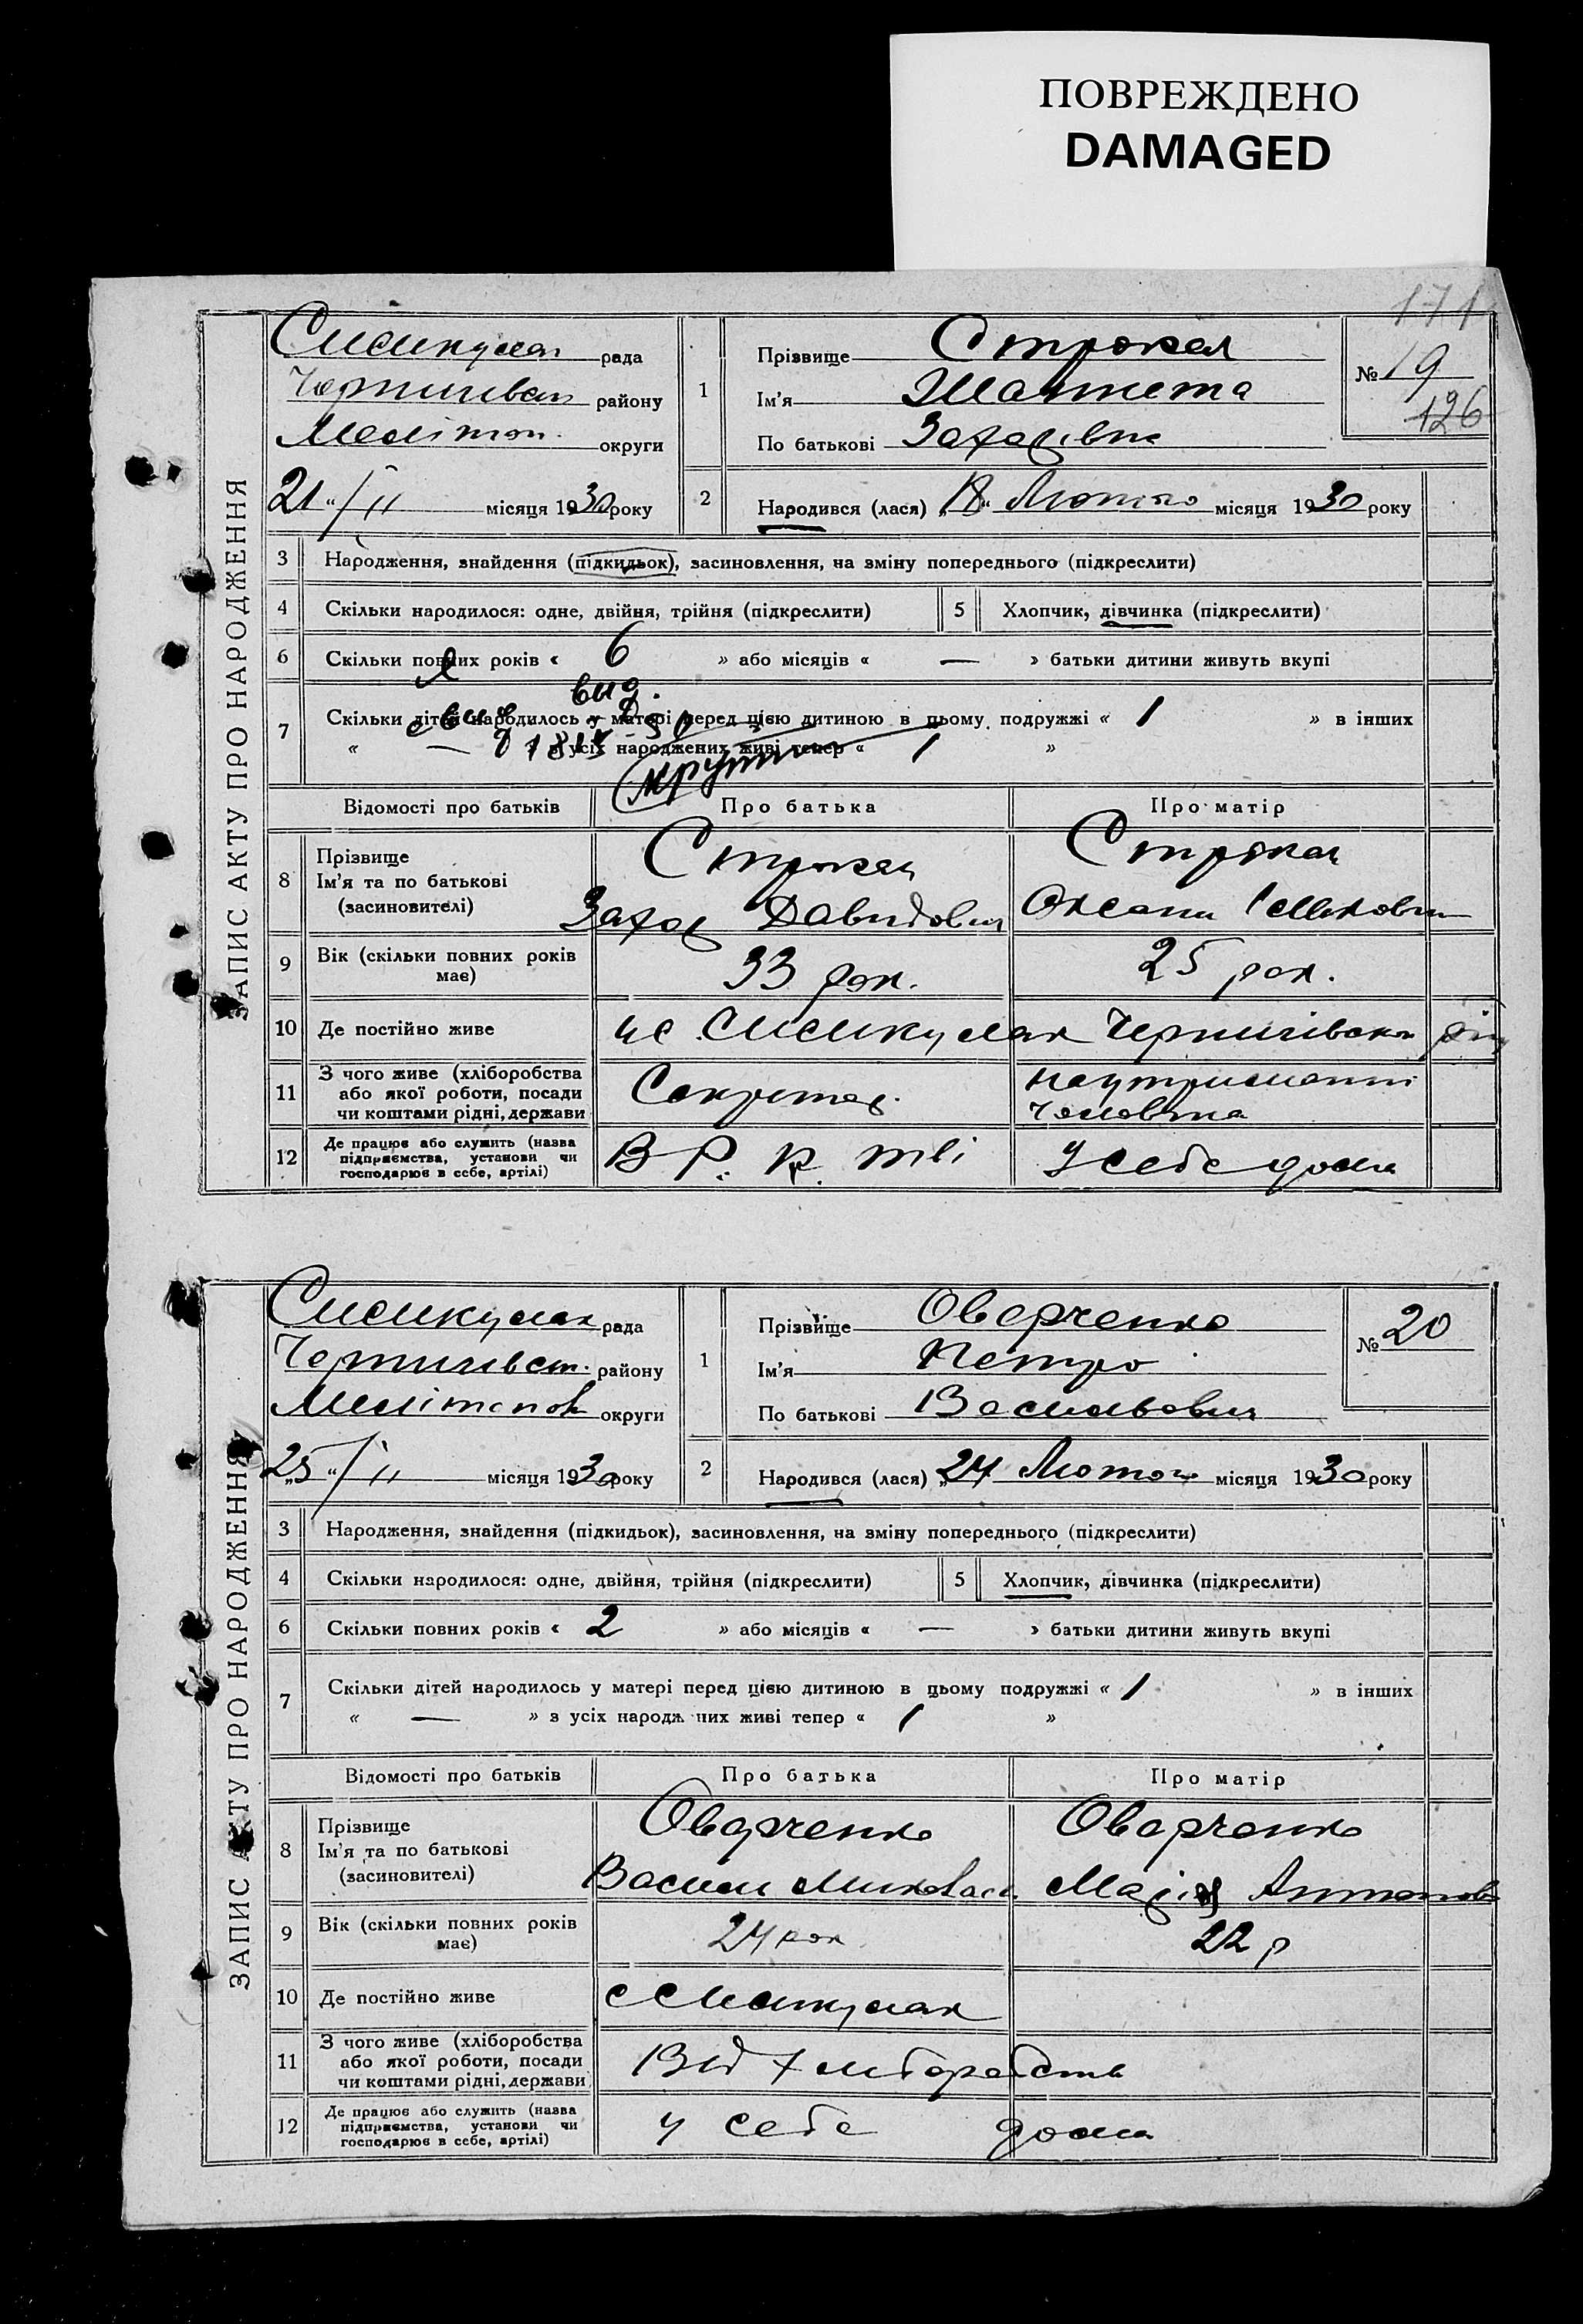 ПОВРЕЖДЕНО
DAMAGED
171
ЗАПИС АКТУ ПРО НАРОДЖЕННЯ
рада
району
Меліtоп. округи
21 "/II місяця 1930 року
1
Прізвище Строкая
Ім'я Жаннета
По батькові Захарівна
№ 19
126
2
Народився (лася) „18" Лютого місяця 1930 року
3 Народження, знайдення (підкидьок), засиновлення, на зміну попереднього (підкреслити)
4 Скільки народилося: одне, двійня, трійня (підкреслити) 5 Хлопчик, дівчинка (підкреслити)
6 Скільки повних років « 6 » або місяців « — » батьки дитини живуть вкупі
вид.
7 Скільки дітей народилось у матері перед цією дитиною в цьому подружжі « 1 » в інших
« — » з усіх народжених живі тепер « 1 »
Відомості про батьків Про батька Про матір
8 Прізвище Ім'я та по батькові (засиновителі) Строкай Захар Давидович Строкая Оксана
9 Вік (скільки повних років має) 33 рок. 25 рок.
10 Де постійно живе
11 З чого живе (хліборобства або якої роботи, посади чи коштами рідні, держави Секретар. чоловіка
12 Де працює або служить (назва підприємства, установи чи господарює в себе, артілі) В Р. К. тві У себе дома
ЗАПИС АКТУ ПРО НАРОДЖЕННЯ
рада
району
Мелітопол округи
„25"/II місяця 1930 року
1
Прізвище Оверченко
Ім'я Петро
По батькові Васильович
№ 20
2
Народився (лася) „24 Лютого місяця 1930 року
3 Народження, знайдення (підкидьок), засиновлення, на зміну попереднього (підкреслити)
4 Скільки народилося: одне, двійня, трійня (підкреслити) 5 Хлопчик, дівчинка (підкреслити)
6 Скільки повних років « 2 » або місяців « — » батьки дитини живуть вкупі
7 Скільки дітей народилось у матері перед цією дитиною в цьому подружжі « 1 » в інших
« — » з усіх народж них живі тепер « 1 »
Відомості про батьків Про батька Про матір
8 Прізвище Ім'я та по батькові (засиновителі) Оверченко Василь Оверченко Марія
9 Вік (скільки повних років має) 24 рок 22 р
10 Де постійно живе
11 З чого живе (хліборобства або якої роботи, посади чи коштами рідні, держави Від хліборобств
12 Де працює або служить (назва підприємства, установи чи господарює в себе, артілі) у себе дома